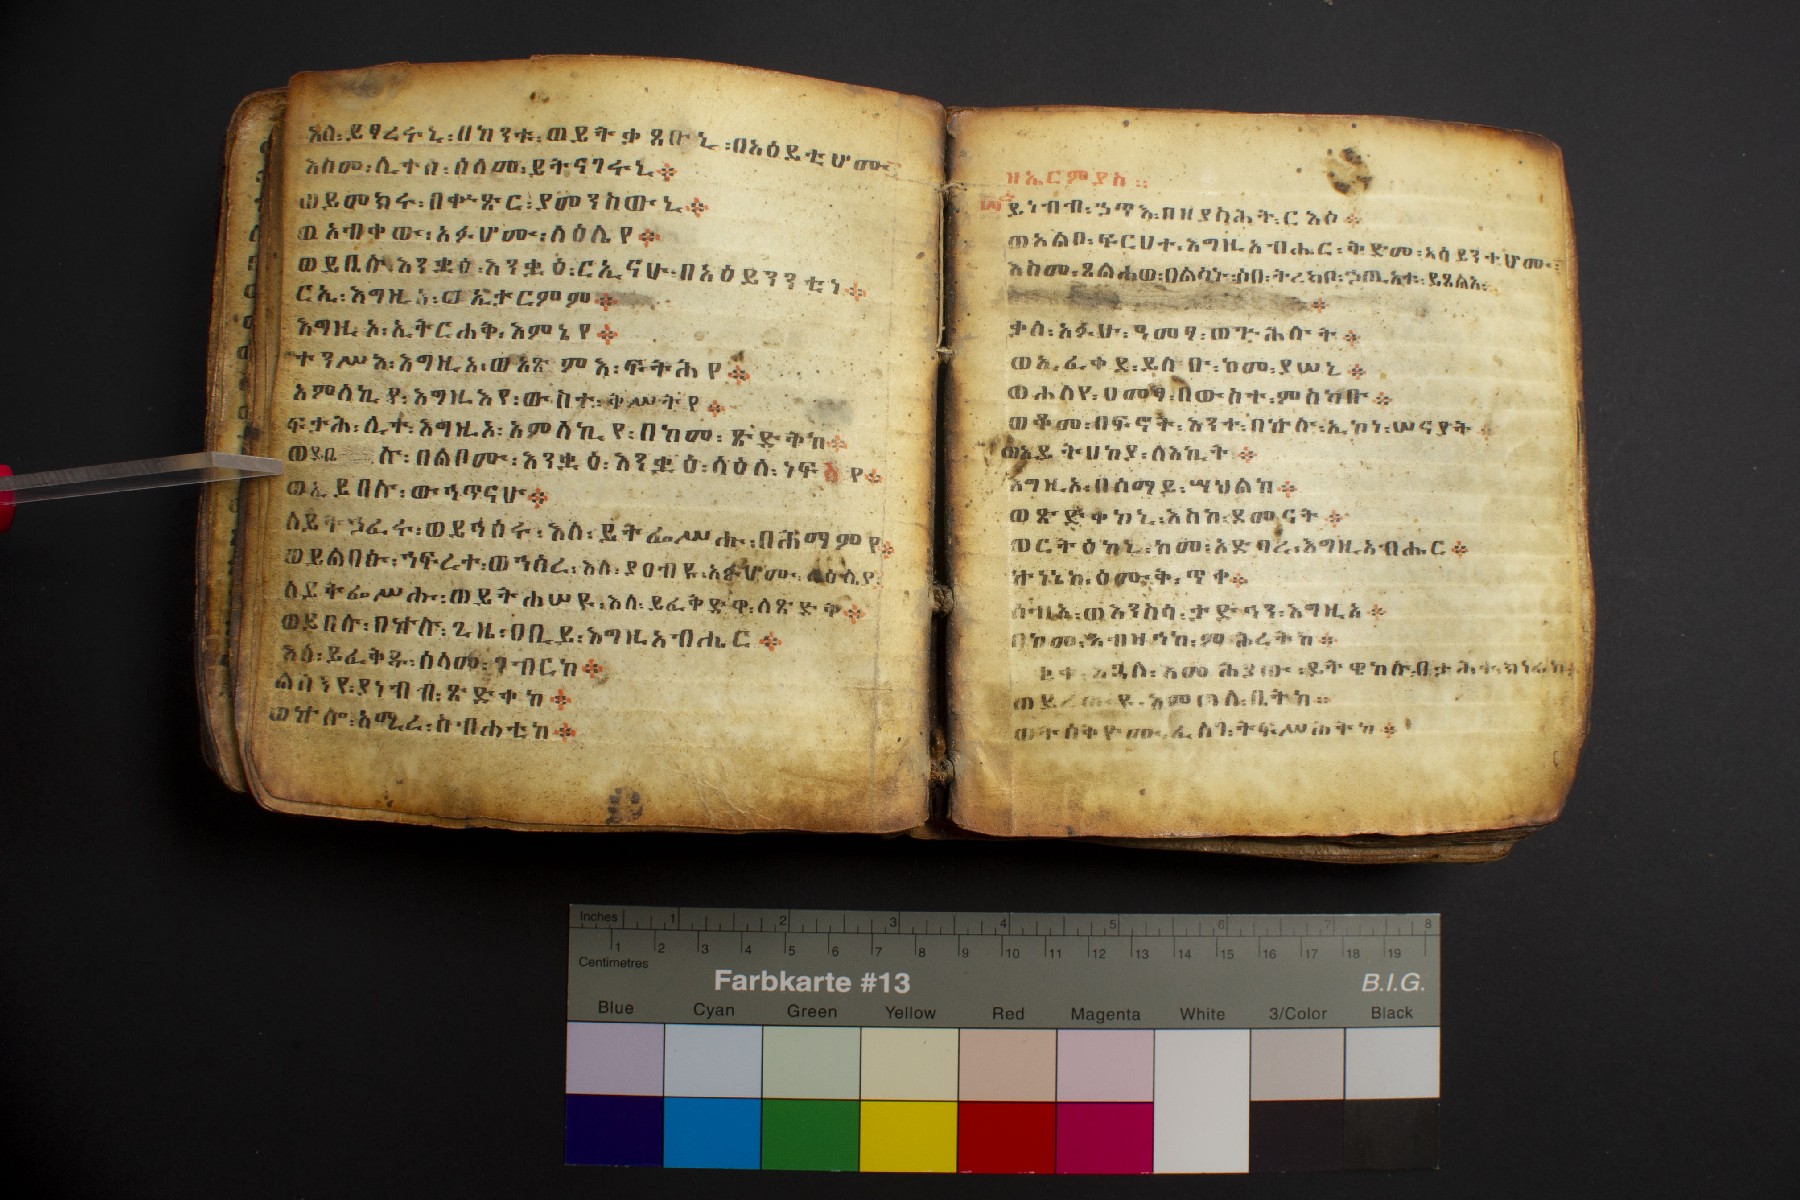 እለ፡ይፃረሩኒ፡በከንቱ፡ወይትቃጸዉኒ፡በአዕይቲሆሙ
እስመ፡ሊተሰ፡ሰላመ፡ይትናገሩኒ።
ወይመክሩ፡በቀጽር፡ያመንስወኒ።
ወአብቀዉ፡አፉሆሙ፡ላዕሌየ።
ወይቢሉ፡እንቋዕ፡እንቋዕ፡ርኢናሁ፡በአዕይንቲነ።
ርኢ፡እግዚኦ፡ወኢታርምም።
እግዚኦ፡ኢትርሐቅ፡እምኔየ።
ተንሥእ፡እግዚኦ፡ወአጽምእ፡ፍትሕየ።
አምላኪየ፡እግዚእየ፡ውስተ፡ቅሥትየ።
ፍታሕ፡ሊተ፡እግዚኦ፡አምላኪየ፡በከመ፡ጽድቅከ።
ወይቤሉ፡በልቦሙ፡እንቋዕ፡እንቋዕ፡ላዕለ፡ነፍስየ።
ወኢይበሉ፡ውኅጥናሁ።
ለይትኃፈሩ፡ወይኅሰሩ፡እለ፡ይትፌሥሑ፡በሕማምየ።
ወይልበሱ፡ኀፍረተ፡ወኀሳረ፡እለ፡ያዐብዩ፡አፉሆሙ፡ላዕሌየ፡
ለይትፌሥሑ፡ወይትሐሠዩ፡እለ፡ይፈቅድዋ፡ለጽድቅ።
ወይበሉ፡በኵሉ፡ጊዜ፡ዐቢይ፡እግዚአብሔር።
እለ፡ይፈቅዱ፡ሰላመ፡ገብርከ።
ልሳንየ፡ያነብብ፡ጽድቀከ።
ወኵሎ፡አሚረ፡ስብሐቲከ።
ዘኤርምያስ።
ይነብብ፡ኃጥእ፡በዘያስሕት፡ርእሶ።
ወአልቦ፡ፍርሀተ፡እግዚአብሔር፡ቅድመ፡አዕይንተሆሙ፡
እስመ፡ጸልሐወ፡በልሳኑ፡ሶበ፡ትረክቦ፡ኃጢአቱ፡ይጸልእ፡
ቃለ፡አፉሁ፡ዓመፃ፡ወጕሕሉት።
ወኢፈቀደ፡ይለቡ፡ከመ፡ያሠኒ።
ወሐለየ፡ዐመፃ፡በውስተ፡ምስካቡ።
ወቆመ፡በፍኖት፡እንተ፡በኵሉ፡ኢኮነ፡ሠናያት
ወኢይትሀከያ፡ለእኪት።
እግዚኦ፡በሰማይ፡ሣህልከ።
ወጽድቀከኒ፡እስከ፡ደመናት።
ወርትዕከኒ፡ከመ፡አድባረ፡እግዚአብሔር።
ኵነኔከ፡ዕሙቅ፡ጥቀ።
ሰብአ፡ወእንስሳ፡ታድኅን፡እግዚኦ።
በከመ፡አብዛኅከ፡ምሕረትከ።
ደቂቀ፡እጓለ፡እመሕያው፡ይትዌከሉ፡በታሕተ፡ክነፊከ።
ወይረውዩ፡እምጠለ፡ቤትከ።
ወትሰቅዮሙ፡ፈለገ፡ትፍሥሕትከ።
Inches
Centimetres
Farbkarte #13
B.I.G.
Blue Cyan Green Yellow Red Magenta White 3/Color Black